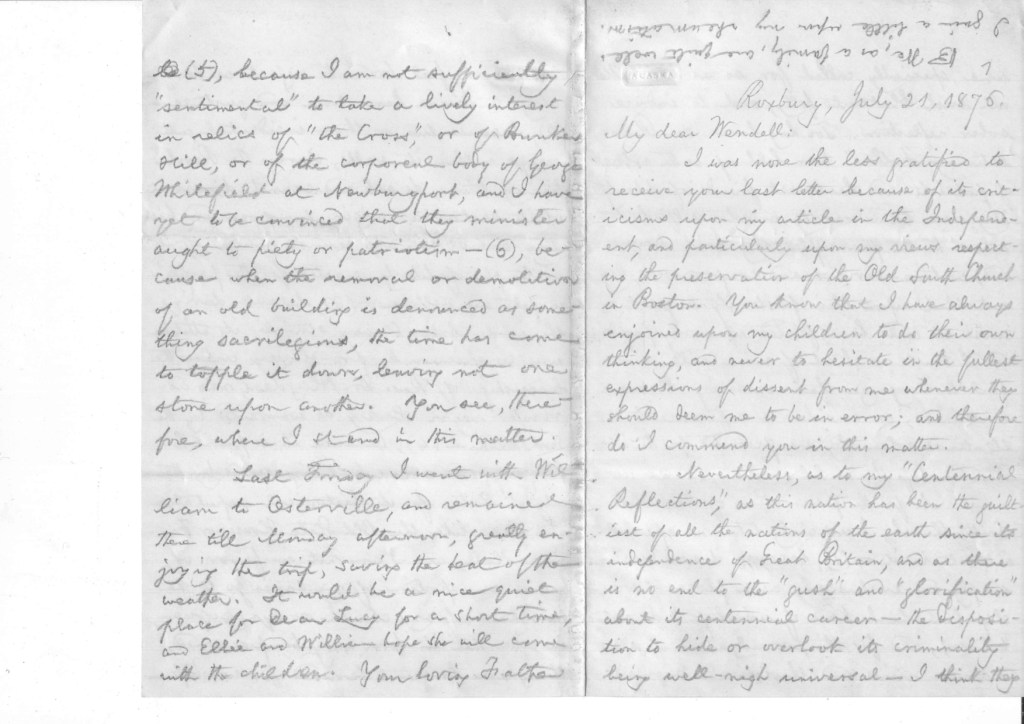 to (5), because I am not sufficiently
"sentimental" to take a lively interest
in relics of "the Cross," or of Bunker
Hill, or of the corporeal body of George
Whitefield at Newburyport, and I have
yet to be convinced that they minister
aught to piety or patriotism—(6), be-
cause when the removal or demolition
of an old building is denounced as some-
thing sacrilegious, the time has come
to topple it down, leaving not one
stone upon another. You see, there-
fore, where I stand in this matter.
Last Friday I went with Wil-
liam to Osterville, and remained
there till Monday afternoon, greatly en-
joying the trip, saving the heat of the
weather. It would be a nice quiet
place for dear Lucy for a short time,
and Ellie and William hope she will come
with the children. Your loving Father
We, as a family, are quite well.
I gain a little upon my rheumatism.
ALASKA
Roxbury, July 21, 1876.
My dear Wendell:
I was none the less gratified to
receive your last letter because of its crit-
icisms upon my article in the Independ-
ent, and particularly upon my views respect-
ing the preservation of the Old South Church
in Boston. You know that I have always
enjoined upon my children to do their own
thinking, and never to hesitate in the fullest
expressions of dissent from me whenever they
should deem me to be in error; and therefore
do I commend you in this matter.
Nevertheless, as to my "Centennial
Reflections," as this nation has been the guilt-
iest of all the nations of the earth since its
independence of Great Britain, and as there
is no end to the "gush" and "glorification"
about its centennial career—the disposi-
tion to hide or overlook its criminality
being well-nigh universal—I think they